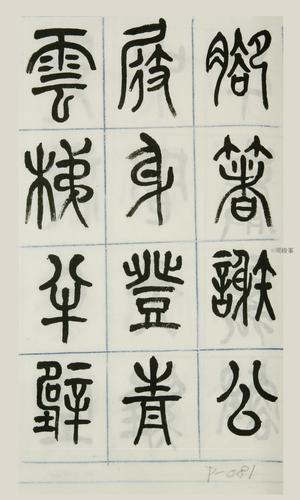 腳著謝公
屐身登青
雲梯半壁
P-081